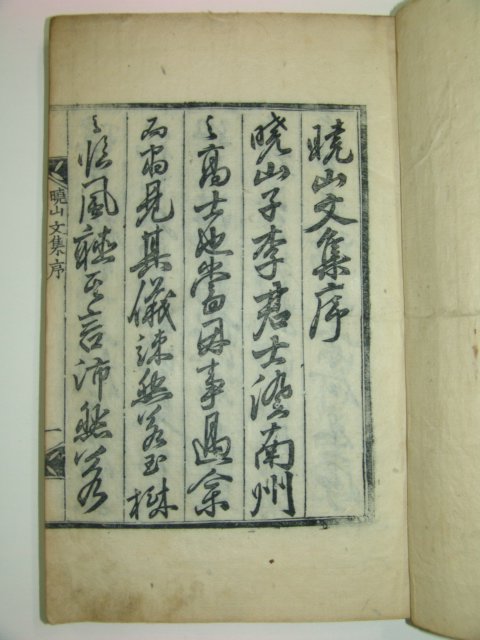 曉山文集序
曉山子李君士澄南州
之高士也嘗因事過余
而見其儀竦然若玉樹
之臨風聽其言沛然若
曉山文集序
一